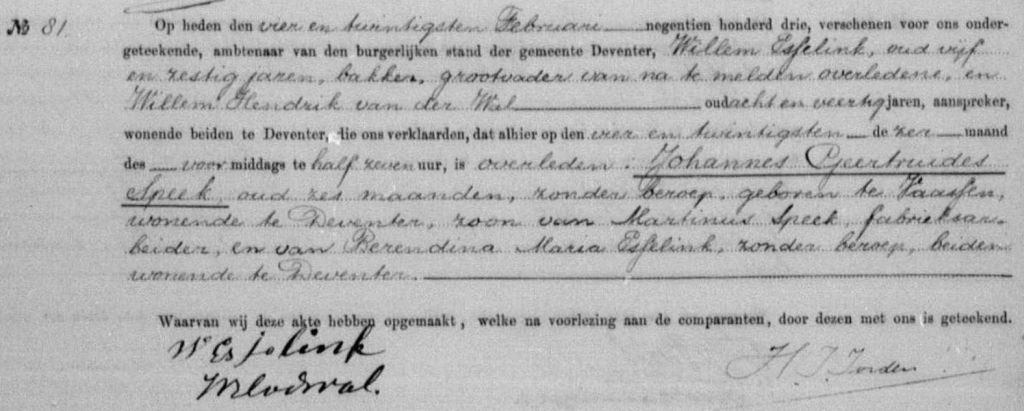 № 81.
Op heden den vier en twintigsten Februari negentien honderd drie, verschenen voor ons onder-
geteekende, ambtenaar van den burgerlijken stand der gemeente Deventer, Willem Esselink, oud vijf
en zestig jaren, bakker, grootvader van na te melden overledene, en
Willem Hendrik van der Wal oud acht en veertig jaren, aanspreker,
wonende beiden te Deventer, die ons verklaarden, dat alhier op den vier en twintigsten dezer maand
des voormiddags te half zeven uur, is overleden: Johannes Geertruides
Speek, oud zes maanden, zonder beroep, geboren te Vaassen,
wonende te Deventer, zoon van Martinus Speek, fabrieksar-
beider, en van Berendina Maria Esselink, zonder beroep, beiden
wonende te Deventer.
Waarvan wij deze akte hebben opgemaakt, welke na voorlezing aan de comparanten, door dezen met ons is geteekend.
W Esselink
H. J. Jorden